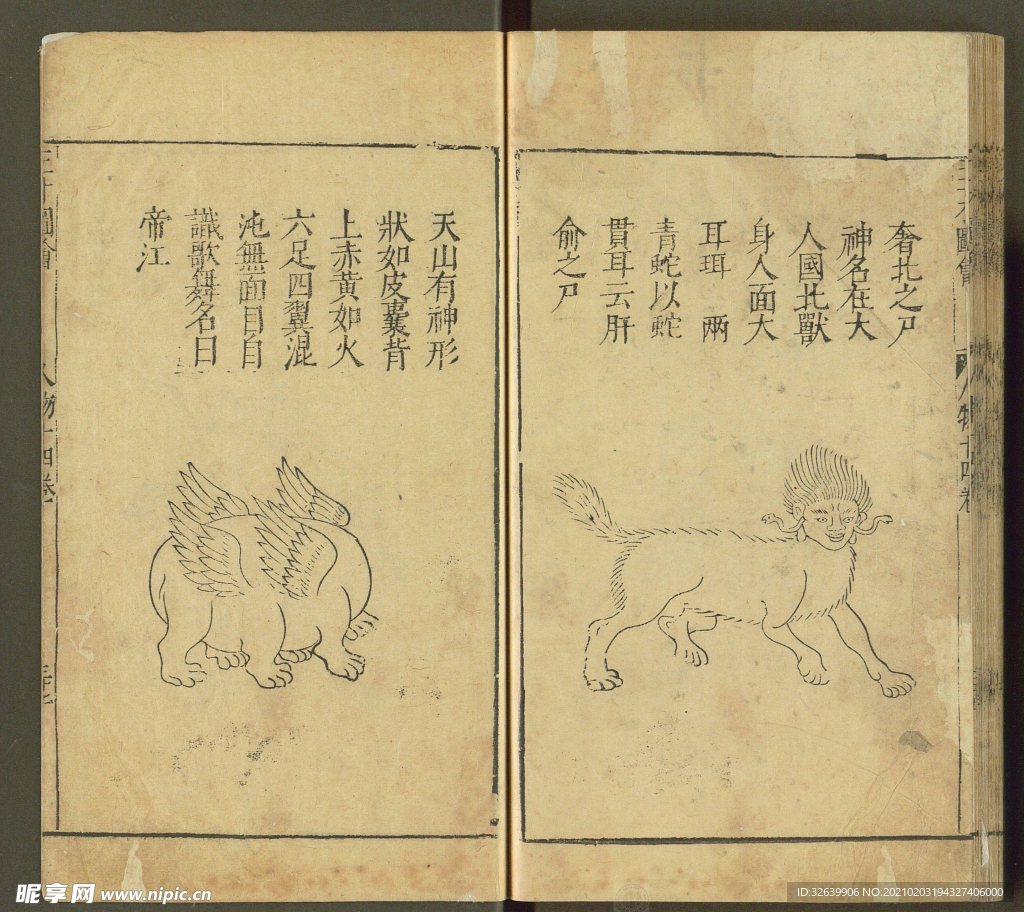 奢北之尸
神名在大
人國北獸
身人面大
耳珥兩
青蛇以蛇
貫耳云肝
俞之尸
天山有神形
狀如皮囊背
上赤黃如火
六足四翼混
沌無面目自
識歌舞名曰
帝江
三才圖會
人物十四卷
三才圖會
人物十四卷
昵享网 www.nipic.cn
ID:32639906 NO:20210203194327406000